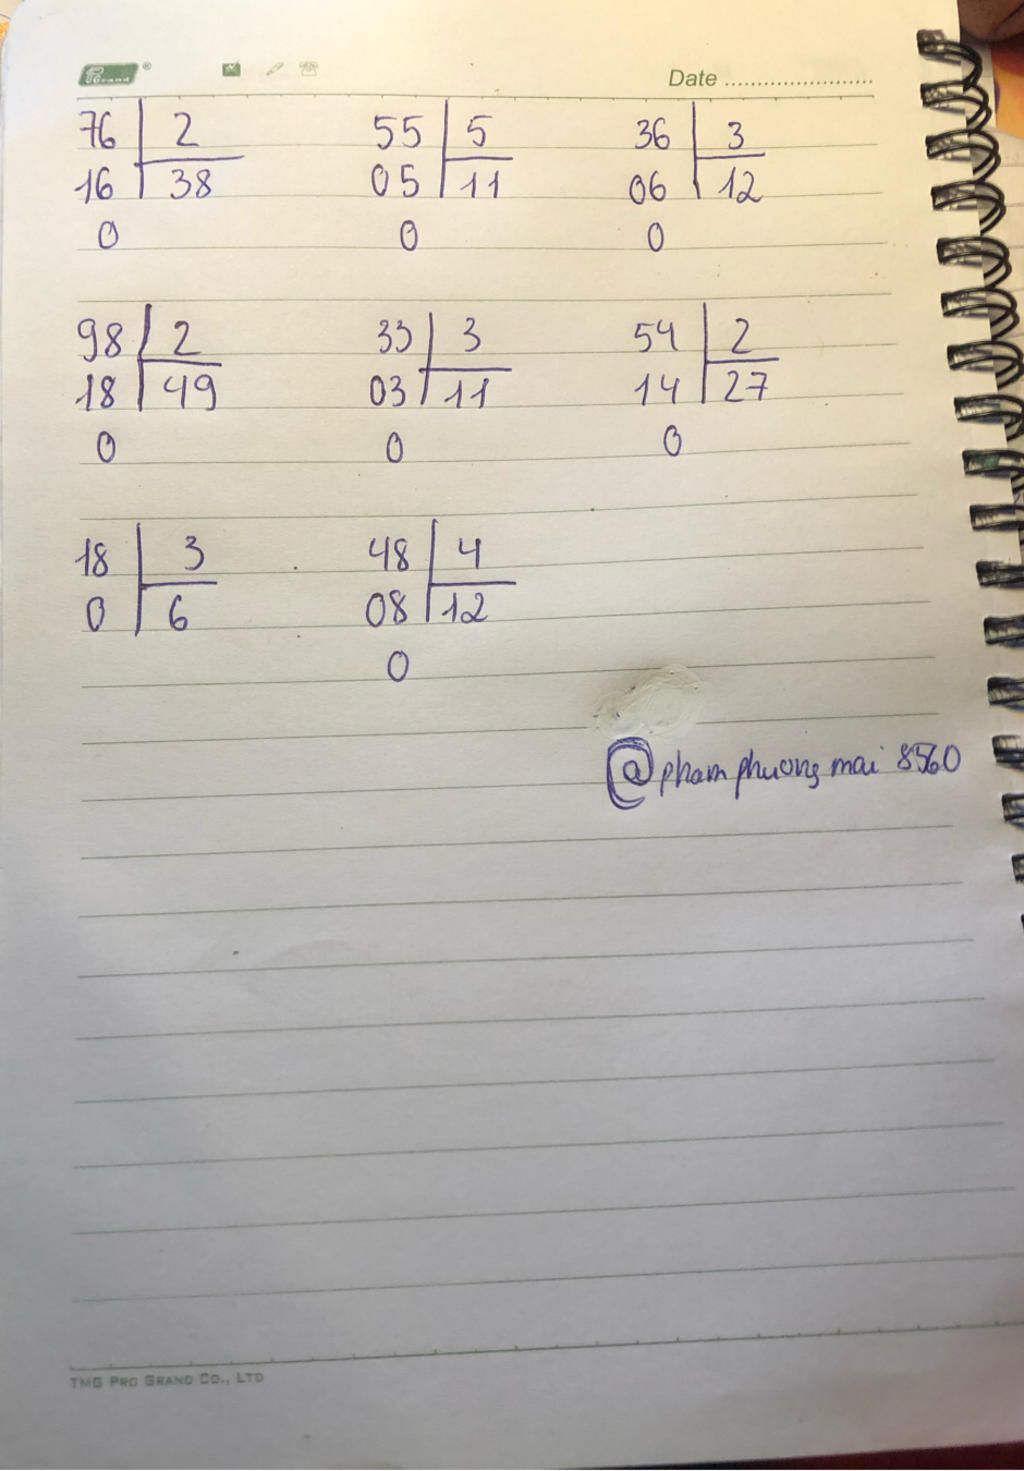 Grand ®
Date ........................
76 2 55 5 36 3
16 38 05 11 06 12
0 0 0
98 2 33 3 54 2
18 49 03 11 14 27
0 0 0
18 3 48 4
0 6 08 12
0
@phamphuongmai 8560
TMG PRO GRAND CO., LTD